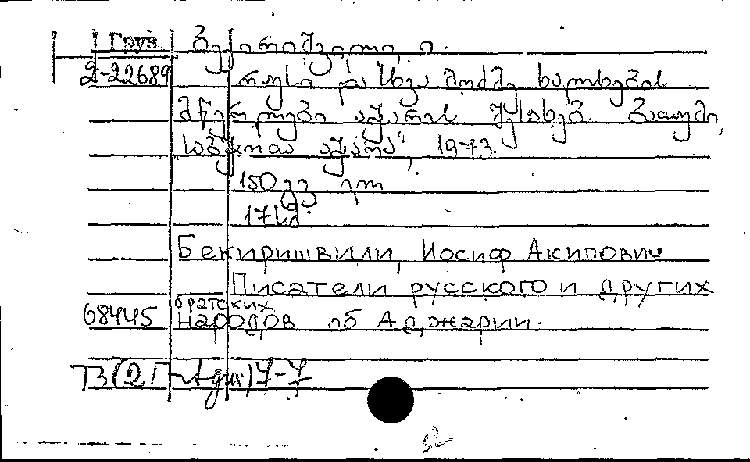 Груз
2-22689 რუსი და სხვა მოძმე ხალხების
მწერლები აჭარის შესახებ. ბათუმი,
საბჭოთა აჭარა", 1973.
150 გვ
Бекиришвили, Иосиф Акипович
Писатели русского и других
братских
68445 народов об Аджарии.